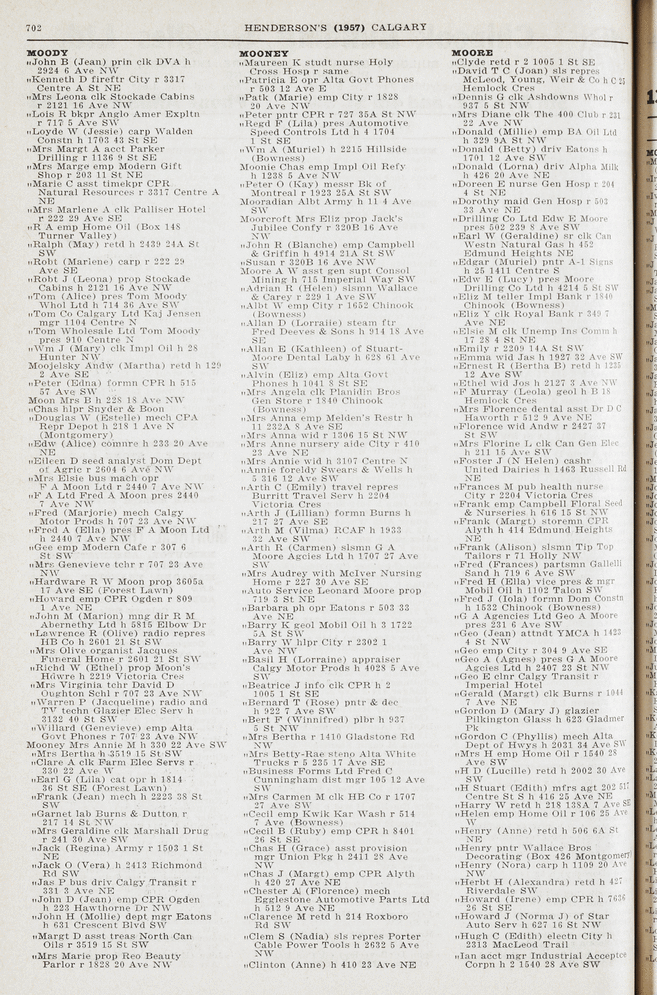 702
HENDERSON'S (1957) CALGARY
MOODY
„John B (Jean) prin clk DVA h
2924 6 Ave NW
„Kenneth D fireftr City r 3317
Centre A St NE
„Mrs Leona clk Stockade Cabins
r 2121 16 Ave NW
„Lois R bkpr Anglo Amer Expltn
r 717 5 Ave SW
„Loyde W (Jessie) carp Walden
Constn h 1703 43 St SE
„Mrs Margt A acct Parker
Drilling r 1136 9 St SE
„Mrs Marge emp Modern Gift
Shop r 203 11 St NE
„Marie C asst timekpr CPR
Natural Resources r 3317 Centre A
NE
„Mrs Marlene A clk Palliser Hotel
r 222 29 Ave SE
„R A emp Home Oil (Box 148
Turner Valley)
„Ralph (May) retd h 2439 24A St
SW
„Robt (Marlene) carp r 222 29
Ave SE
„Robt J (Leona) prop Stockade
Cabins h 2121 16 Ave NW
„Tom (Alice) pres Tom Moody
Whol Ltd h 714 36 Ave SW
„Tom Co Calgary Ltd Kaj Jensen
mgr 1104 Centre N
„Tom Wholesale Ltd Tom Moody
pres 910 Centre N
„Wm J (Mary) clk Impl Oil h 28
Hunter NW
Moojelsky Andw (Martha) retd h 129
2 Ave SE
„Peter (Edna) formn CPR h 515
57 Ave SW
Moon Mrs B h 228 18 Ave NW
„Chas hlpr Snyder & Boon
„Douglas W (Estelle) mech CPA
Repr Depot h 218 1 Ave N
(Montgomery)
„Edw (Alice) comnre h 233 20 Ave
NE
„Eileen D seed analyst Dom Dept
of Agric r 2604 6 Ave NW
„Mrs Elsie bus mach opr
F A Moon Ltd r 2440 7 Ave NW
„F A Ltd Fred A Moon pres 2440
7 Ave NW
„Fred (Marjorie) mech Calgy
Motor Prods h 707 23 Ave NW
„Fred A (Ella) pres F A Moon Ltd
h 2440 7 Ave NW
„Gee emp Modern Cafe r 307 6
St SW
„Mrs Genevieve tchr r 707 23 Ave
NW
„Hardware R W Moon prop 3605a
17 Ave SE (Forest Lawn)
„Howard emp CPR Ogden r 809
1 Ave NE
„John M (Marion) mng dir R M
Abernethy Ltd h 5815 Elbow Dr
„Lawrence R (Olive) radio repres
HB Co h 2601 21 St SW
„Mrs Olive organist Jacques
Funeral Home r 2601 21 St SW
„Richd W (Ethel) prop Moon's
Hdwre h 2219 Victoria Cres
„Mrs Virginia tchr David D
Oughton Schl r 707 23 Ave NW
„Warren P (Jacqueline) radio and
TV techn Glazier Elec Serv h
3132 40 St SW
„Willard (Genevieve) emp Alta
Govt Phones r 707 23 Ave NW
Mooney Mrs Annie M h 330 22 Ave SW
„Mrs Bertha h 3519 15 St SW
„Clare A clk Farm Elec Servs r
330 22 Ave W
„Earl G (Lila) cat opr h 1814
36 St SE (Forest Lawn)
„Frank (Jean) mech h 2223 38 St
SW
„Garnet lab Burns & Dutton r
217 14 St NW
„Mrs Geraldine clk Marshall Drug
r 241 30 Ave SW
„Jack (Regina) Army r 1503 1 St
NE
„Jack O (Vera) h 2413 Richmond
Rd SW
„Jas P bus driv Calgy Transit r
331 3 Ave NE
„John D (Jean) emp CPR Ogden
h 223 Hawthorne Dr NW
„John H (Mollie) dept mgr Eatons
h 631 Crescent Blvd SW
„Margt D asst treas North Can
Oils r 3519 15 St SW
„Mrs Marie prop Reo Beauty
Parlor r 1828 20 Ave NW
MOONEY
„Maureen K studt nurse Holy
Cross Hosp r same
„Patricia E opr Alta Govt Phones
r 503 12 Ave E
„Patk (Marie) emp City r 1828
20 Ave NW
„Peter pntr CPR r 727 35A St NW
„Regd F (Lila) pres Automotive
Speed Controls Ltd h 4 1704
1 St SE
„Wm A (Muriel) h 2215 Hillside
(Bowness)
Moonie Chas emp Impl Oil Refy
h 1238 5 Ave NW
„Peter O (Kay) messr Bk of
Montreal r 1923 25A St SW
Mooradian Albt Army h 11 4 Ave
SW
Moorcroft Mrs Eliz prop Jack's
Jubilee Confy r 320B 16 Ave
NW
„John R (Blanche) emp Campbell
& Griffin h 4914 21A St SW
„Susan r 320B 16 Ave NW
Moore A W asst gen supt Consol
Mining h 715 Imperial Way SW
„Adrian R (Helen) slsmn Wallace
& Carey r 229 1 Ave SW
„Albt W emp City r 1652 Chinook
(Bowness)
„Allan D (Lorraie) steam ftr
Fred Deeves & Sons h 914 18 Ave
SE
„Allan E (Kathleen) of Stuart-
Moore Dental Laby h 628 61 Ave
SW
„Alvin (Eliz) emp Alta Govt
Phones h 1041 8 St SE
„Mrs Angela clk Planidin Bros
Gen Store r 1840 Chinook
(Bowness)
„Mrs Anna emp Melden's Restr h
11 232A 8 Ave SW
„Mrs Anna wid r 1306 15 St NW
„Mrs Anne nursery aide City r 410
23 Ave NE
„Mrs Annie wid h 3107 Centre N
„Annie foreldy Swears & Wells h
5 316 12 Ave SW
„Arth C (Emily) travel repres
Burritt Travel Serv h 2204
Victoria Cres
„Arth J (Lillian) formn Burns h
217 27 Ave SE
„Arth M (Vilma) RCAF h 1933
32 Ave SW
„Arth R (Carmen) slsmn G A
Moore Agcies Ltd h 1707 27 Ave
SW
„Mrs Audrey with McIver Nursing
Home r 227 30 Ave SE
„Auto Service Leonard Moore prop
719 3 St NE
„Barbara ph opr Eatons r 503 33
Ave NE
„Barry K geol Mobil Oil h 3 1722
5A St SW
„Barry W hlpr City r 2302 1
Ave NW
„Basil H (Lorraine) appraiser
Calgy Motor Prods h 4028 5 Ave
SW
„Beatrice J info clk CPR h 2
1005 1 St SE
„Bernard T (Rose) pntr & dec
h 922 7 Ave SW
„Bert F (Winnifred) plbr h 937
5 St NW
„Mrs Bertha r 1410 Gladstone Rd
NW
„Mrs Betty-Rae steno Alta White
Trucks r 5 235 17 Ave SE
„Business Forms Ltd Fred C
Cunningham dist mgr 105 12 Ave
SW
„Mrs Carmen M clk HB Co r 1707
27 Ave SW
„Cecil emp Kwik Kar Wash r 514
7 Ave (Bowness)
„Cecil B (Ruby) emp CPR h 8401
26 St SE
„Chas H (Grace) asst provision
mgr Union Pkg h 2411 28 Ave
NW
„Chas J (Margt) emp CPR Alyth
h 420 27 Ave NE
„Chester A (Florence) mech
Egglestone Automotive Parts Ltd
h 512 9 Ave NE
„Clarence M retd h 214 Roxboro
Rd SW
„Clem S (Nadia) sls repres Porter
Cable Power Tools h 2632 5 Ave
NW
„Clinton (Anne) h 410 23 Ave NE
MOORE
„Clyde retd r 2 1005 1 St SE
„David T C (Joan) sls repres
McLeod, Young, Weir & Co h C 25
Hemlock Cres
„Dennis G clk Ashdowns Whol r
937 5 St NW
„Mrs Diane clk The 400 Club r 231
22 Ave NW
„Donald (Millie) emp BA Oil Ltd
h 329 9A St NW
„Donald (Betty) driv Eatons h
1701 12 Ave SW
„Donald (Lorna) driv Alpha Milk
h 426 20 Ave NE
„Doreen E nurse Gen Hosp r 204
4 St NE
„Dorothy maid Gen Hosp r 503
33 Ave NE
„Drilling Co Ltd Edw E Moore
pres 502 239 8 Ave SW
„Earl W (Geraldine) sr clk Can
Westn Natural Gas h 452
Edmund Heights NE
„Edgar (Muriel) pntr A-1 Signs
h 25 1411 Centre S
„Edw E (Lucy) pres Moore
Drilling Co Ltd h 4214 5 St SW
„Eliz M teller Impl Bank r 1840
Chinook (Bowness)
„Eliz Y clk Royal Bank r 349 7
Ave NE
„Elsie M clk Unemp Ins Comm h
17 28 4 St NE
„Emily r 2209 14A St SW
„Emma wid Jas h 1927 32 Ave SW
„Ernest R (Bertha B) retd h 1235
12 Ave SW
„Ethel wid Jos h 2127 3 Ave NW
„F Murray (Leola) geol h B 18
Hemlock Cres
„Mrs Florence dental asst Dr D C
Haworth r 512 9 Ave NE
„Florence wid Andw r 2427 37
St SW
„Mrs Florine L clk Can Gen Elec
h 211 15 Ave SW
„Foster J (N Helen) cashr
United Dairies h 1463 Russell Rd
NE
„Frances M pub health nurse
City r 2204 Victoria Cres
„Frank emp Campbell Floral Seed
& Nurseries h 616 15 St NW
„Frank (Margt) storemn CPR
Alyth h 414 Edmund Heights
NE
„Frank (Alison) slsmn Tip Top
Tailors r 71 Holly NW
„Fred (Frances) partsmn Gallelli
Sand h 719 6 Ave SW
„Fred H (Ella) vice pres & mgr
Mobil Oil h 1102 Talon SW
„Fred J (Iola) formn Dom Constn
h 1532 Chinook (Bowness)
„G A Agencies Ltd Geo A Moore
pres 231 6 Ave SW
„Geo (Jean) attndt YMCA h 1423
4 St NW
„Geo emp City r 304 9 Ave SE
„Geo A (Agnes) pres G A Moore
Agcies Ltd h 2407 23 St NW
„Geo E clnr Calgy Transit r
Imperial Hotel
„Gerald (Margt) clk Burns r 1044
7 Ave NE
„Gordon D (Mary J) glazier
Pilkington Glass h 623 Gladmer
Pk
„Gordon C (Phyllis) mech Alta
Dept of Hwys h 2031 34 Ave SW
„Mrs H emp Home Oil r 1540 28
Ave SW
„H D (Lucille) retd h 2002 30 Ave
SW
„H Stuart (Edith) mfrs agt 202 517
Centre St S h 416 25 Ave NE
„Harry W retd h 218 138A 7 Ave SE
„Helen emp Home Oil r 106 25 Ave
W
„Henry (Anne) retd h 506 6A St
NE
„Henry pntr Wallace Bros
Decorating (Box 426 Montgomery)
„Henry (Nora) carp h 1109 20 Ave
NW
„Herbt H (Alexandra) retd h 427
Riverdale SW
„Howard (Irene) emp CPR h 7636
26 St SE
„Howard J (Norma J) of Star
Auto Serv h 627 16 St NW
„Hugh C (Edith) electn City h
2313 MacLeod Trail
„Ian acct mgr Industrial Acceptce
Corpn h 2 1540 28 Ave SW